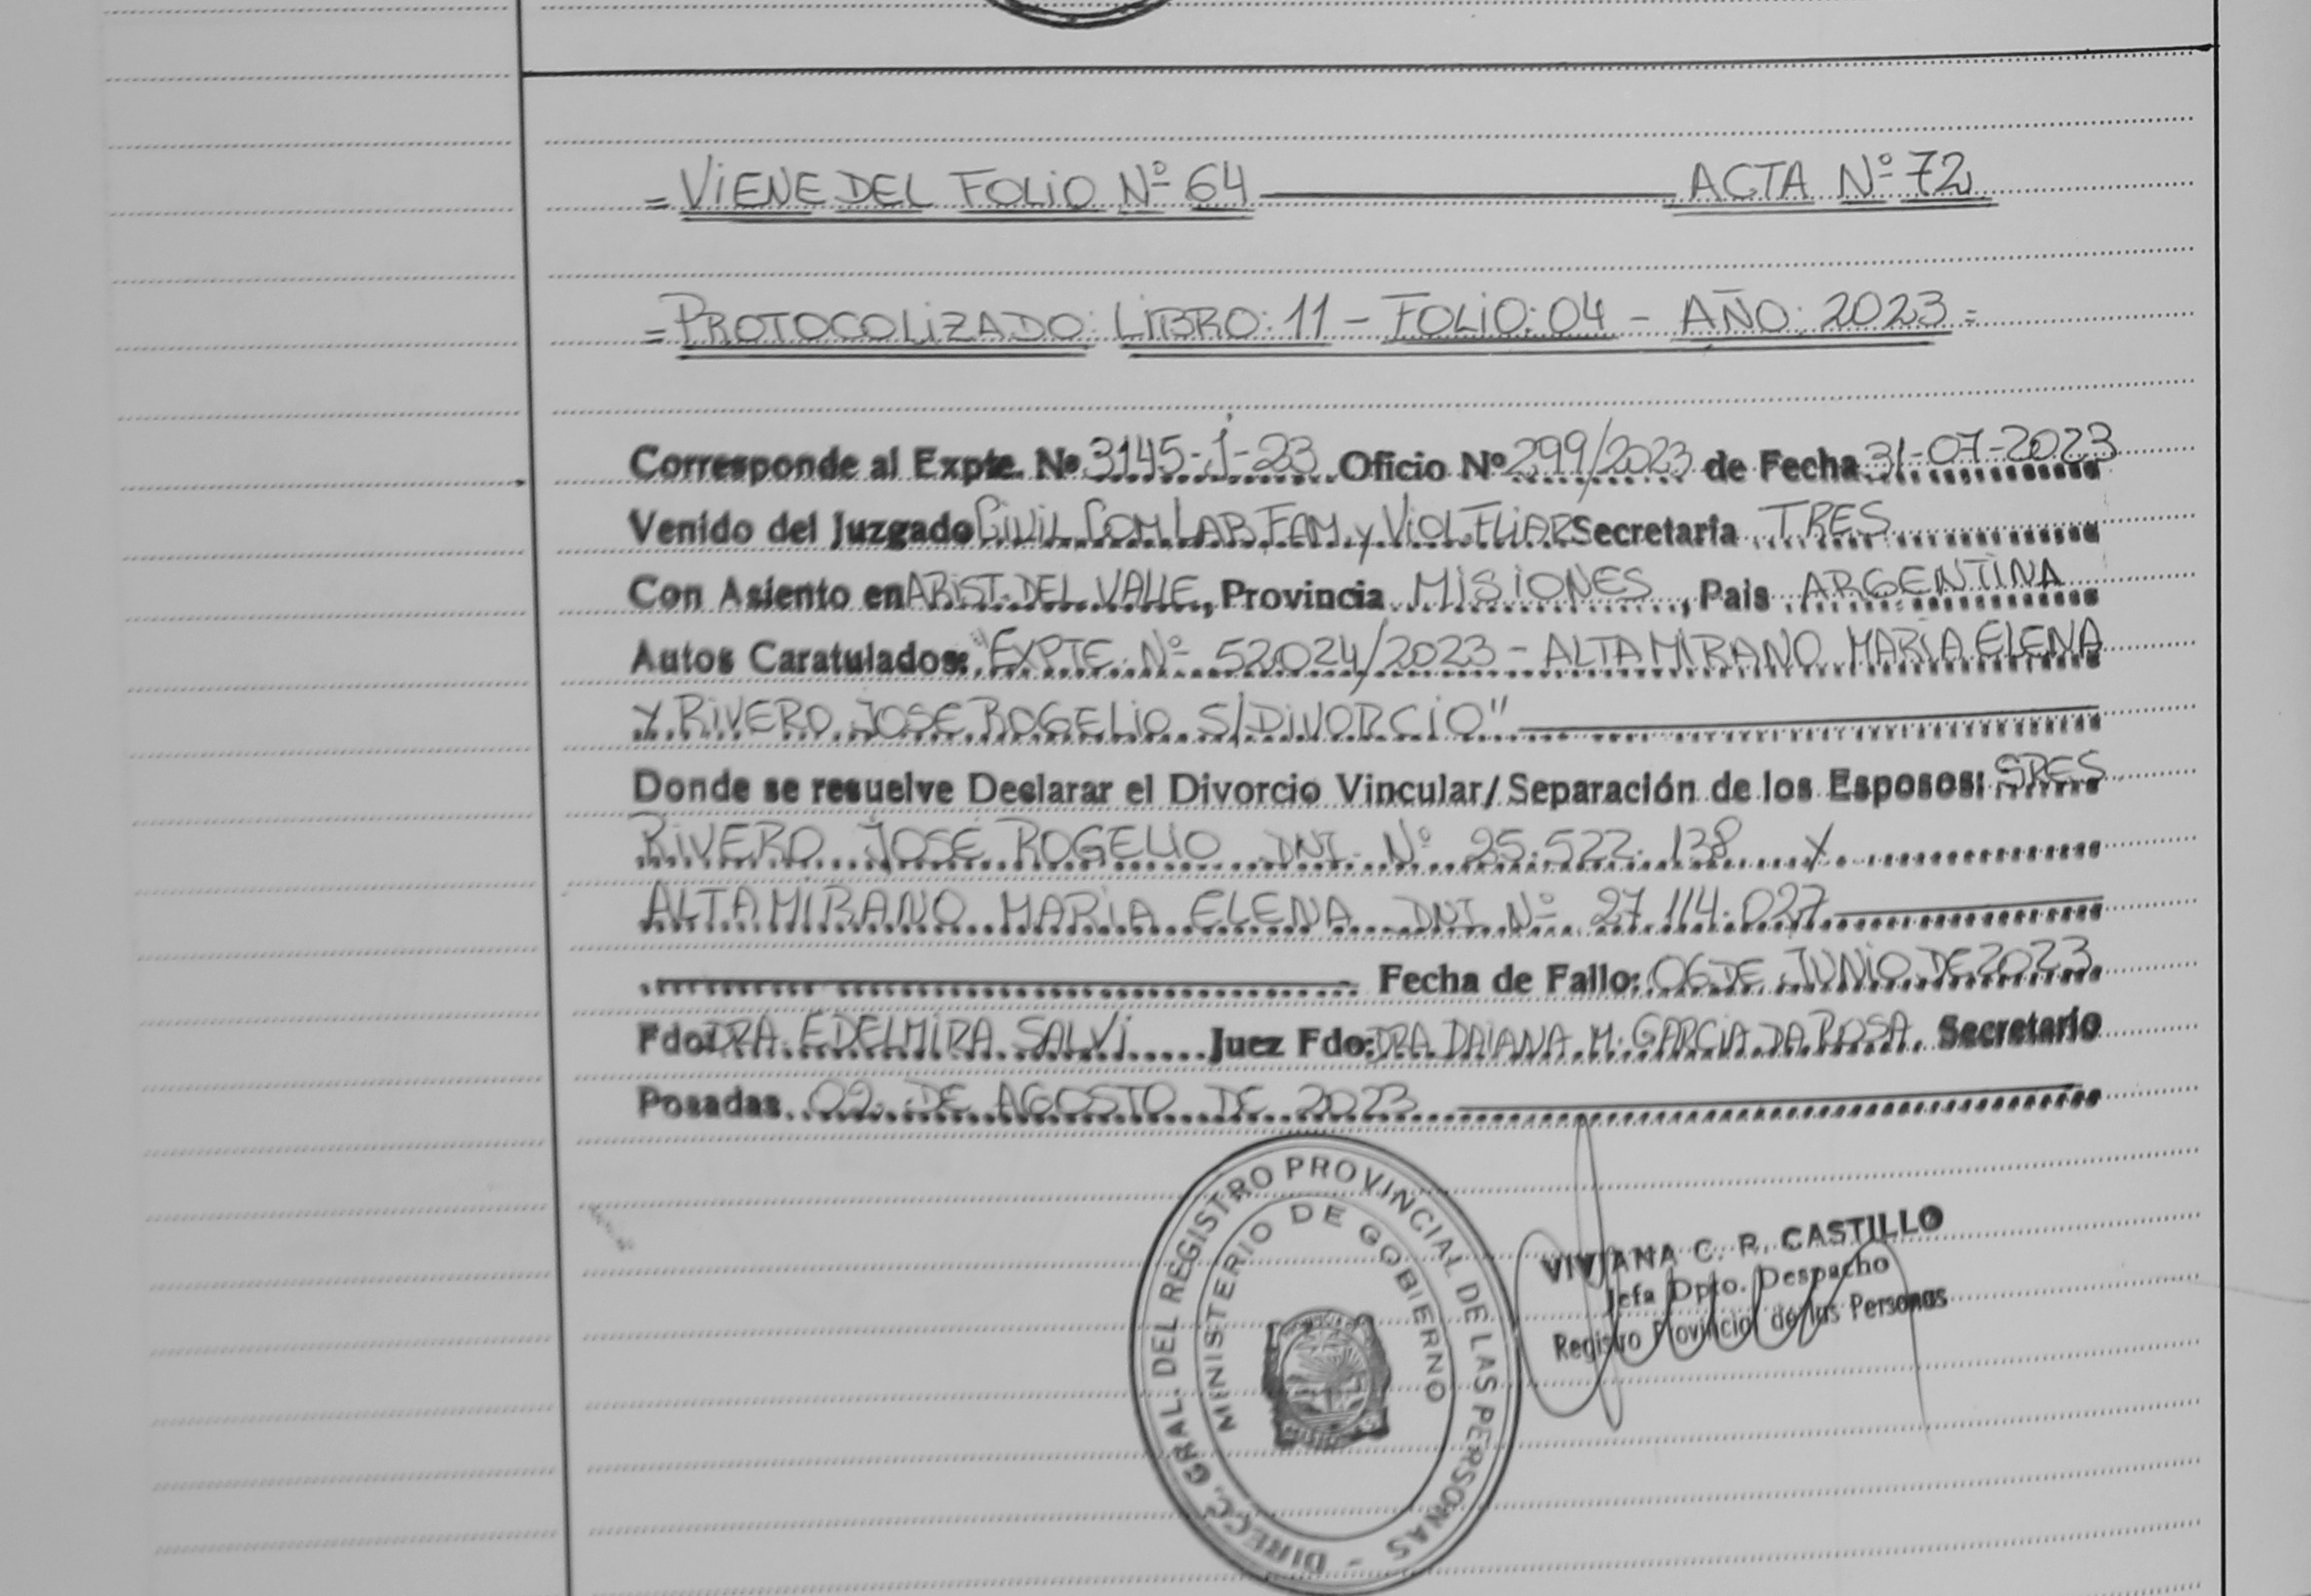 =VIENE DEL FOLIO Nº 64 ACTA Nº 72
=PROTOCOLIZADO: LIBRO: 11 - FOLIO: 04 - AÑO: 2023=
Corresponde al Expte. Nº 3145-J-23 Oficio Nº 299/2023 de Fecha 31-07-2023
Venido del Juzgado CIVIL COM LAB FAM y VIOL FLIAR Secretaria TRES
Con Asiento en ARIST. DEL VALLE, Provincia MISIONES, Pais ARGENTINA
Autos Caratulados: "EXPTE Nº 52024/2023 - ALTAMIRANO MARIA ELENA
Y RIVERO JOSE ROGELIO S/DIVORCIO"
Donde se resuelve Declarar el Divorcio Vincular/Separación de los Esposos: SRES
RIVERO JOSÉ ROGELIO DNI Nº 25.522.138 Y
ALTAMIRANO MARIA ELENA DNI Nº 27.114.027
Fecha de Fallo: 06 DE JUNIO DE 2023
Fdo: DRA. EDELMIRA SALVI Juez Fdo: DRA DAIANA M. GARCIA DA ROSA Secretario
Posadas 02 DE AGOSTO DE 2023
DIRECC. GRAL. DEL REGISTRO PROVINCIAL DE LAS PERSONAS -
MINISTERIO DE GOBIERNO
VIVIANA C. P. CASTILLO
Jefa Dpto. Despacho
Registro Provincial de las Personas